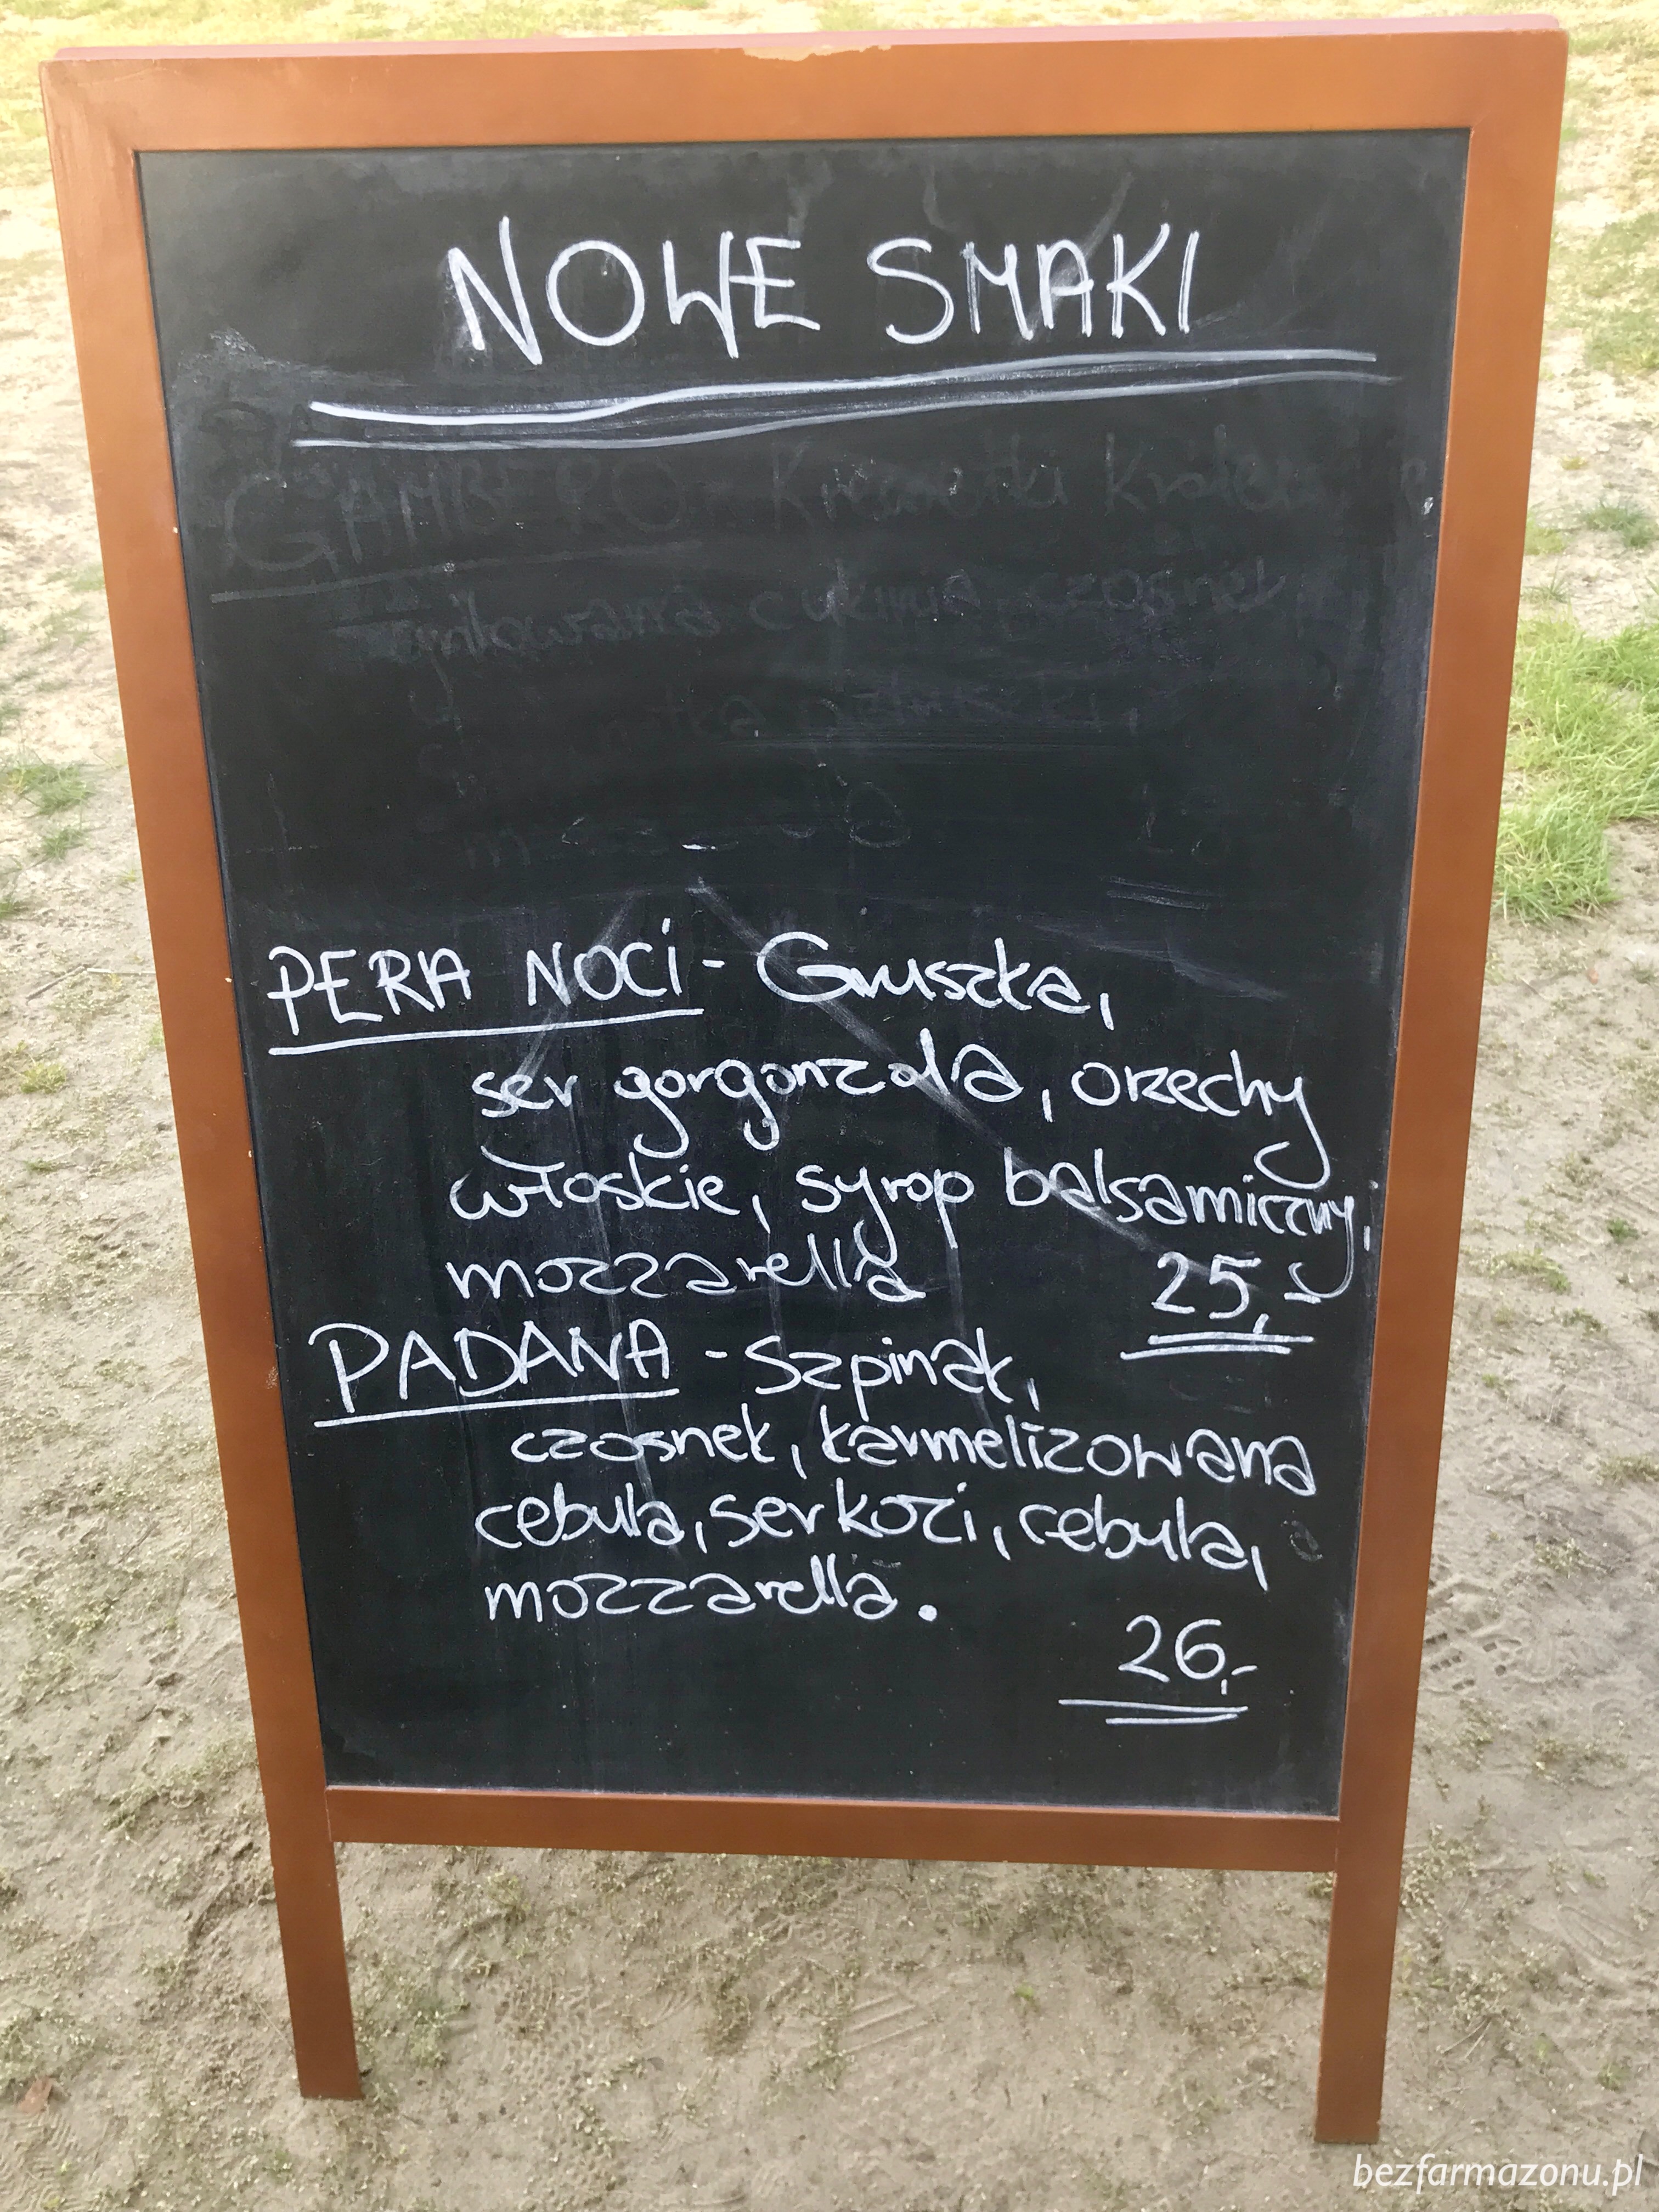 NOWE SMAKI
GAMBERO - Krewetki
cukinia, czosnek
PERA NOCI - Gruszka,
ser gorgonzola, orzechy
włoskie, syrop balsamiczny,
mozzarella 25,-
PADANA - Szpinak,
czosnek, karmelizowana
cebula, ser kozi, cebula,
mozzarella.
26,-
bezfarmazonu.pl